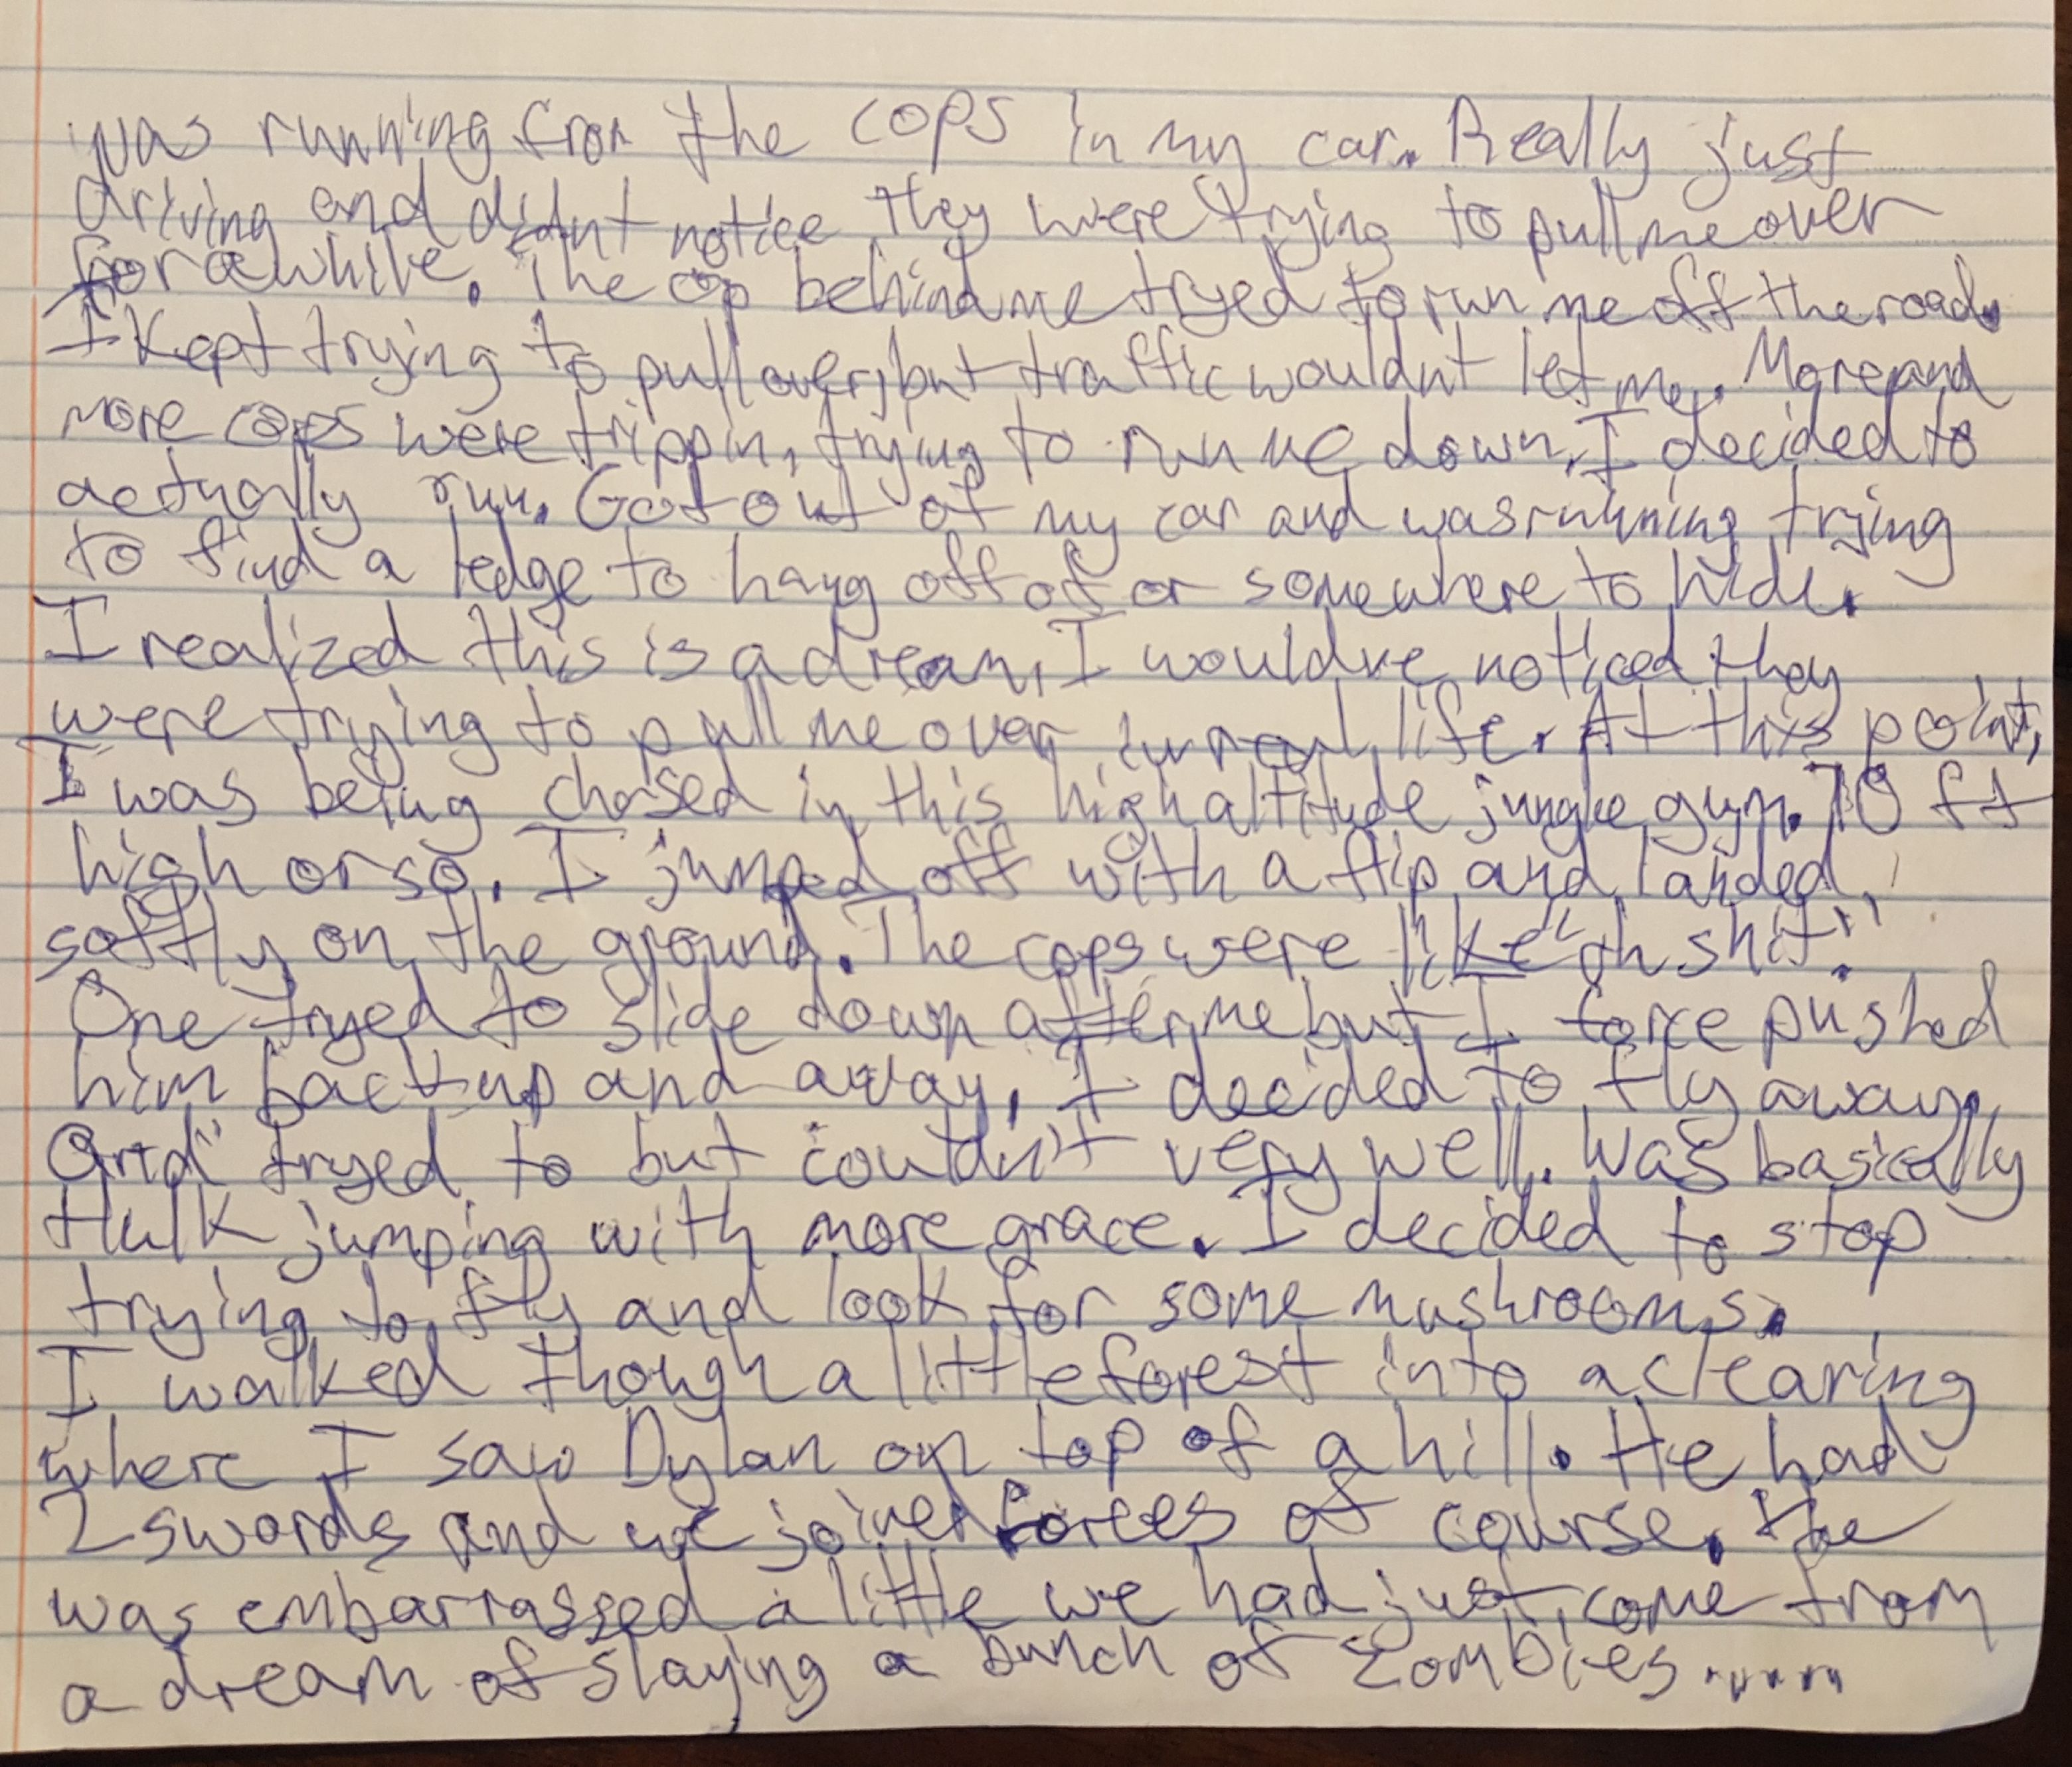 was running from the cops in my car. Really just
driving and didnt notice they were trying to pull me over
for awhile. The cop behind me tryed to run me off the road.
I kept trying to pull over, but traffic wouldnt let me. More and
more cops were trippin, trying to run me down. I decided to
actually run. Got out of my car and was running trying
to find a ledge to hang off of or somewhere to hide.
I realized this is a dream, I wouldve noticed they
were trying to pull me over in real life. At this point,
I was being chased in this high altitude jungle gym. 70 ft
high or so. I jumped off with a flip and landed
softly on the ground. The cops were like "oh shit!"
One tryed to slide down after me but I force pushed
him back up and away. I decided to fly away,
and tryed to but couldn't very well. Was basically
Hulk jumping with more grace. I decided to stop
trying to fly and look for some mushrooms.
I walked though a little forest into a clearing
where I saw Dylan on top of a hill. He had
2 swords and we joined forces of course. He
was embarrassed a little we had just come from
a dream of slaying a bunch of zombies......